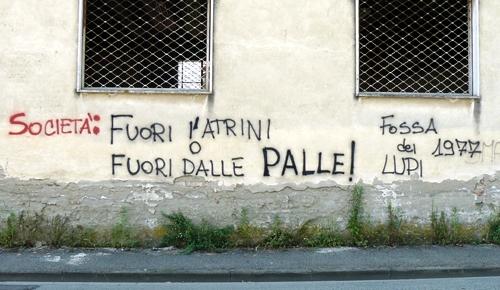 SOCIETÀ: FUORI l'ATRINI
O
FUORI DALLE PALLE!
FOSSA
dei 1977
LUPI